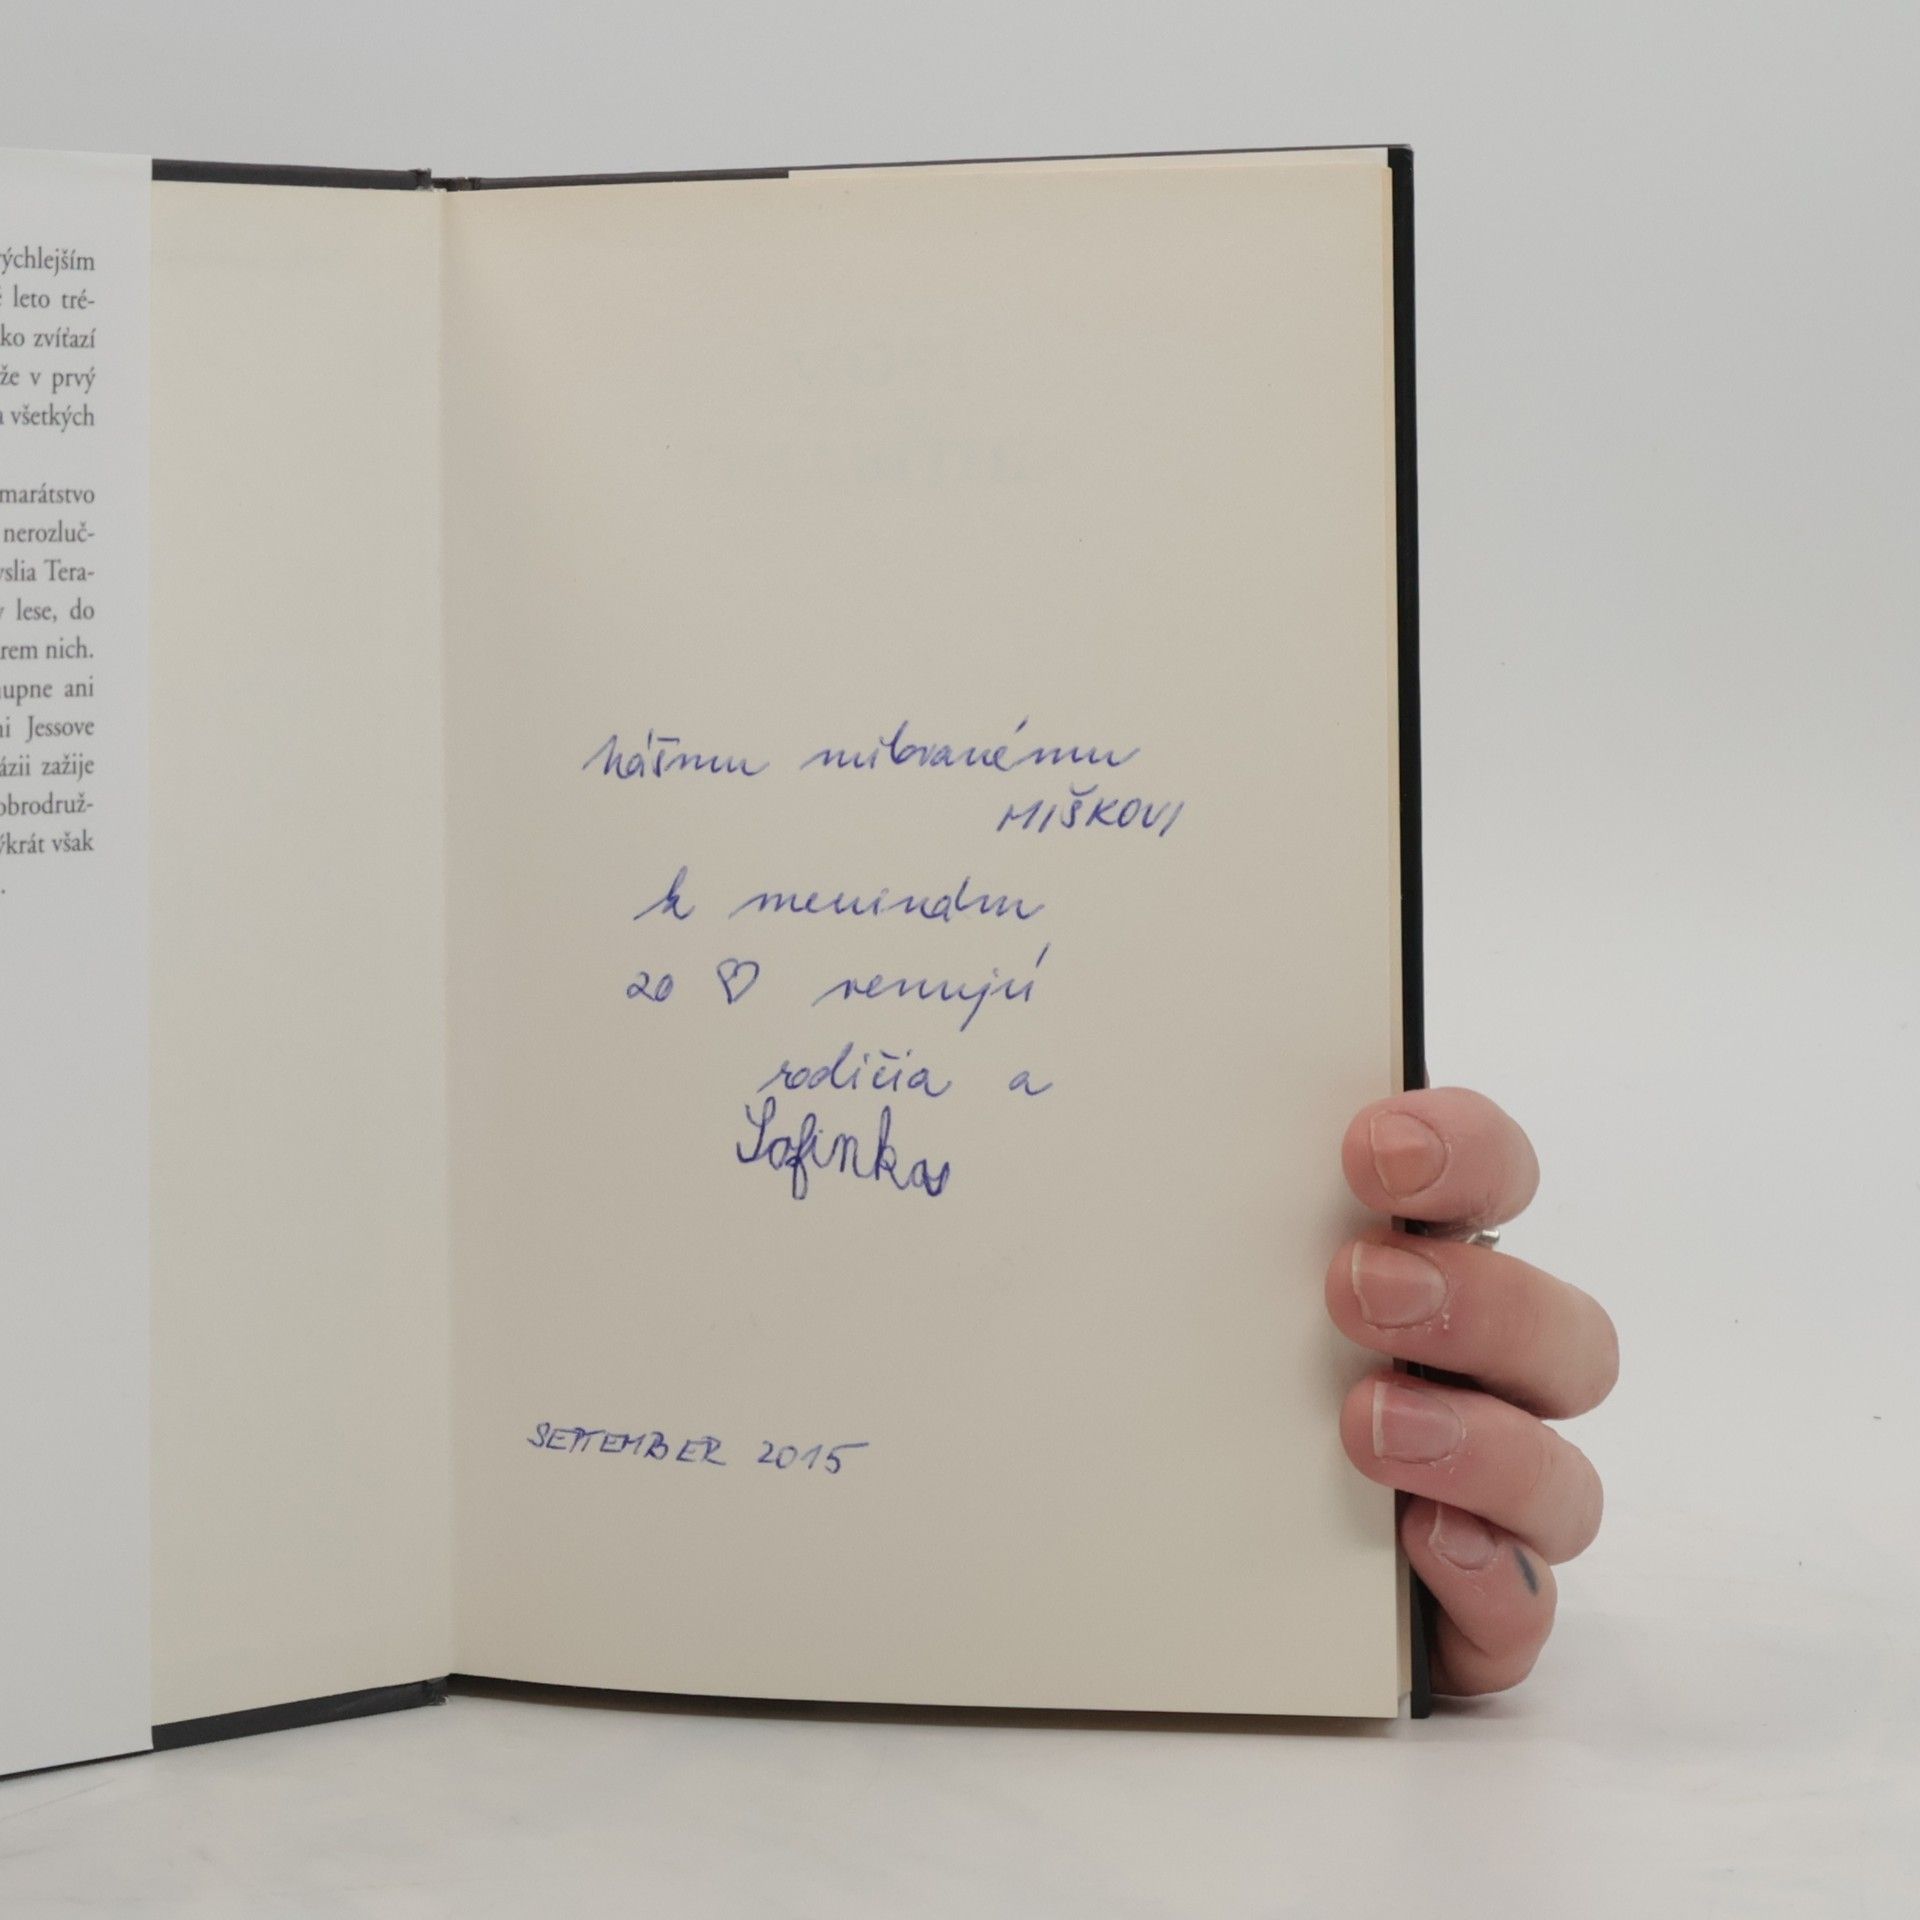 ýchlejším
leto tré-
ko zvíťazí
že v prvý
všetkých
marátstvo
nerozluč-
yslia Tera-
lese, do
rem nich.
upne ani
Jessove
ázii zažije
obrodruž-
ýkrát však
.
Nášmu milovanému
MIŠKOVI
k meninám
zo ♡ venujú
rodičia a
Sofinka
SEPTEMBER 2015